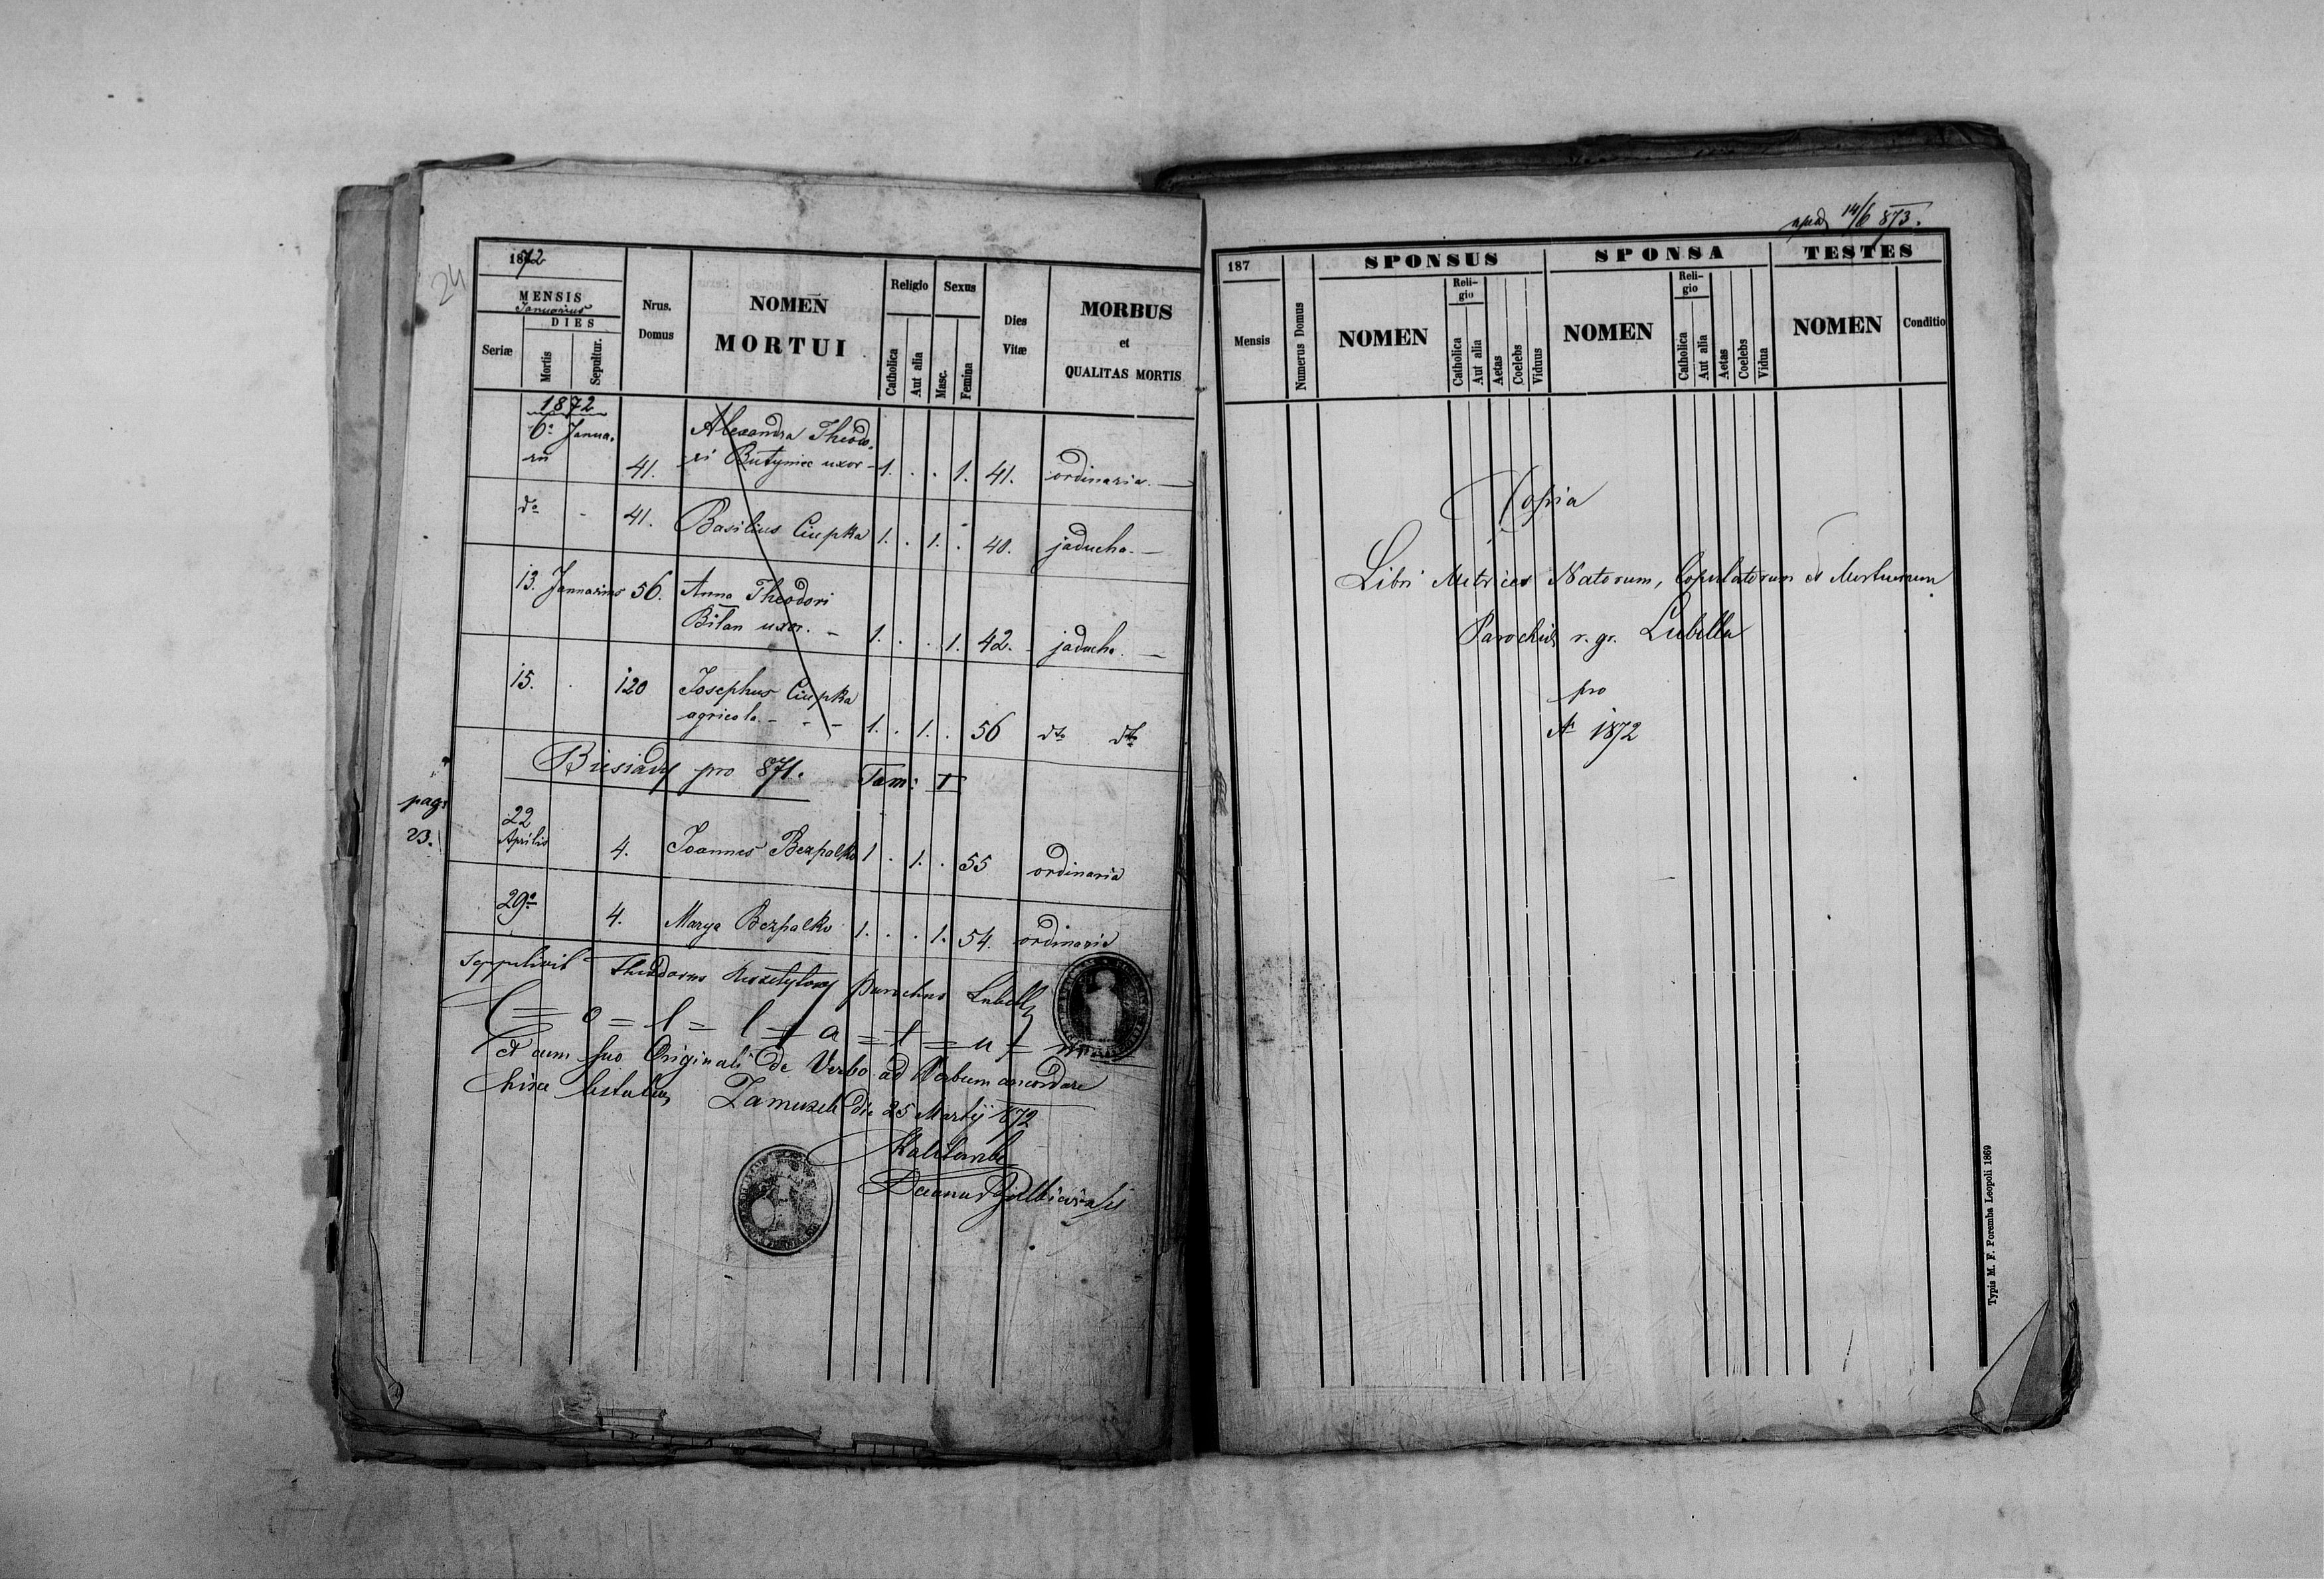 24
1872
MENSIS
Januarius
DIES
Seriæ
Mortis
Sepultur.
Nrus.
Domus
NOMEN
MORTUI
Religio
Catholica
Aut alia
Sexus
Masc.
Femina
Dies
Vitæ
MORBUS
et
QUALITAS MORTIS
1872
6a Janua.
rii 41. Alexandra Theodo.
ri Butyniec uxor - 1. . . 1. 41. ordinaria. —
do - 41. Basilius Ciupka 1. . 1. . 40. jaducha. —
13. Januarius 56. Anna Theodori
Bilan uxor. - 1. . . 1. 42. - jaducha. —
15. . 120 Josephus Ciupka
agricola. - - - 1. . 1. . 56 dto dto
Biesiady pro 871. Tom: I
pag:
23.
22
Aprilis 4. Joannes Bezpalko 1 . 1. . 55 ordinaria
29a 4. Marya Bezpalko 1. . . 1. 54. ordinaria
Seppelivit Theodorus parochus Lubella
C = o = l = l = a = t = u =
et cum suo Originali de Verbo ad Verbum concordare
hisce testatur die 25 Martij 872
Decanus
npead 14/6 873.
187
Mensis
Numerus Domus
SPONSUS
NOMEN
Reli-
gio
Catholica
Aut alia
Aetas
Coelebs
Viduus
SPONSA
NOMEN
Reli-
gio
Catholica
Aut alia
Aetas
Coelebs
Vidua
TESTES
NOMEN
Conditio
Copia
Libri Metrices Natorum, Copulatorum et Mortuorum
Parochiæ r. gr. Lubella
pro
A 1872
Typis M. F. Poremba Leopoli 1869